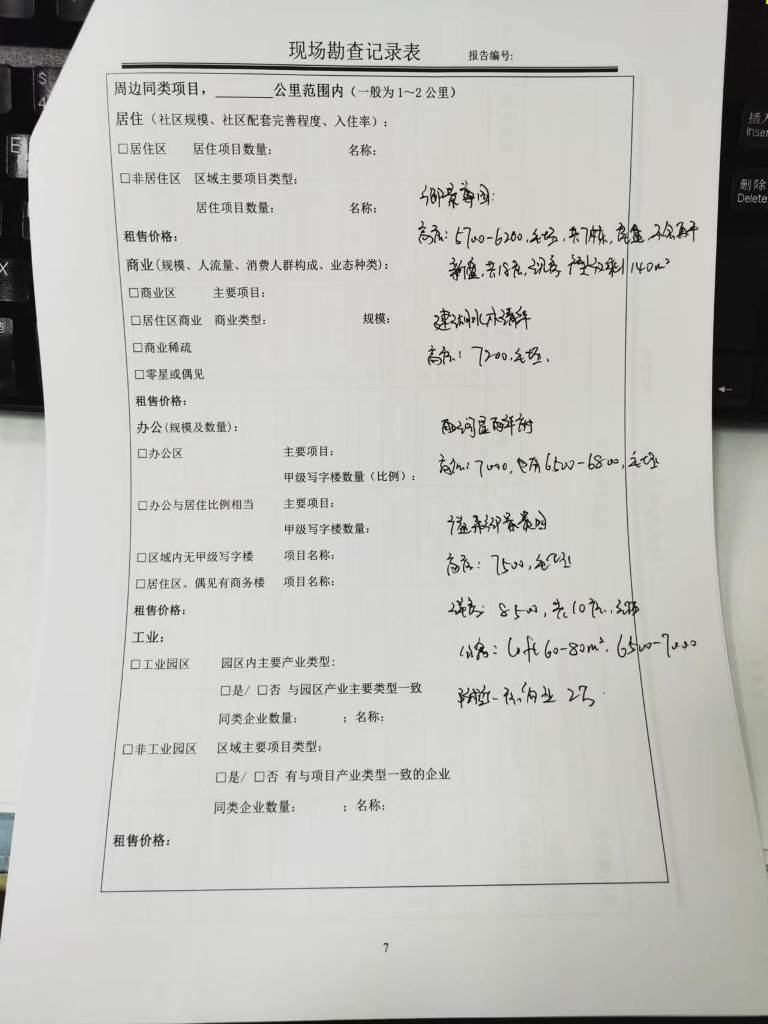 现场勘查记录表 报告编号:
周边同类项目，________公里范围内（一般为1～2公里）
居住（社区规模、社区配套完善程度、入住率）:
□居住区 居住项目数量: 名称:
□非居住区 区域主要项目类型:
居住项目数量: 名称:
租售价格: 高层: 5700-6200, 毛坯, 共7栋,
商业(规模、人流量、消费人群构成、业态种类): 新盘, 共18层, 140m²
□商业区 主要项目:
□居住区商业 商业类型: 规模:
□商业稀疏 高层: 7200, 毛坯.
□零星或偶见
租售价格:
办公(规模及数量):
□办公区 主要项目:
甲级写字楼数量（比例）: 高层: 7000, 也有6500-6800, 毛坯
□办公与居住比例相当 主要项目:
甲级写字楼数量:
□区域内无甲级写字楼 项目名称: 高层: 7500, 毛坯
□居住区、偶见有商务楼 项目名称:
租售价格: 洋房: 8500, 共10层,
工业:
□工业园区 园区内主要产业类型: 公寓: loft 60-80m². 6500-7000
□是/ □否 与园区产业主要类型一致
同类企业数量: ；名称:
□非工业园区 区域主要项目类型:
□是/ □否 有与项目产业类型一致的企业
同类企业数量: ；名称:
租售价格:
7
插入
Insert
删除
Delete
$
4
E
X